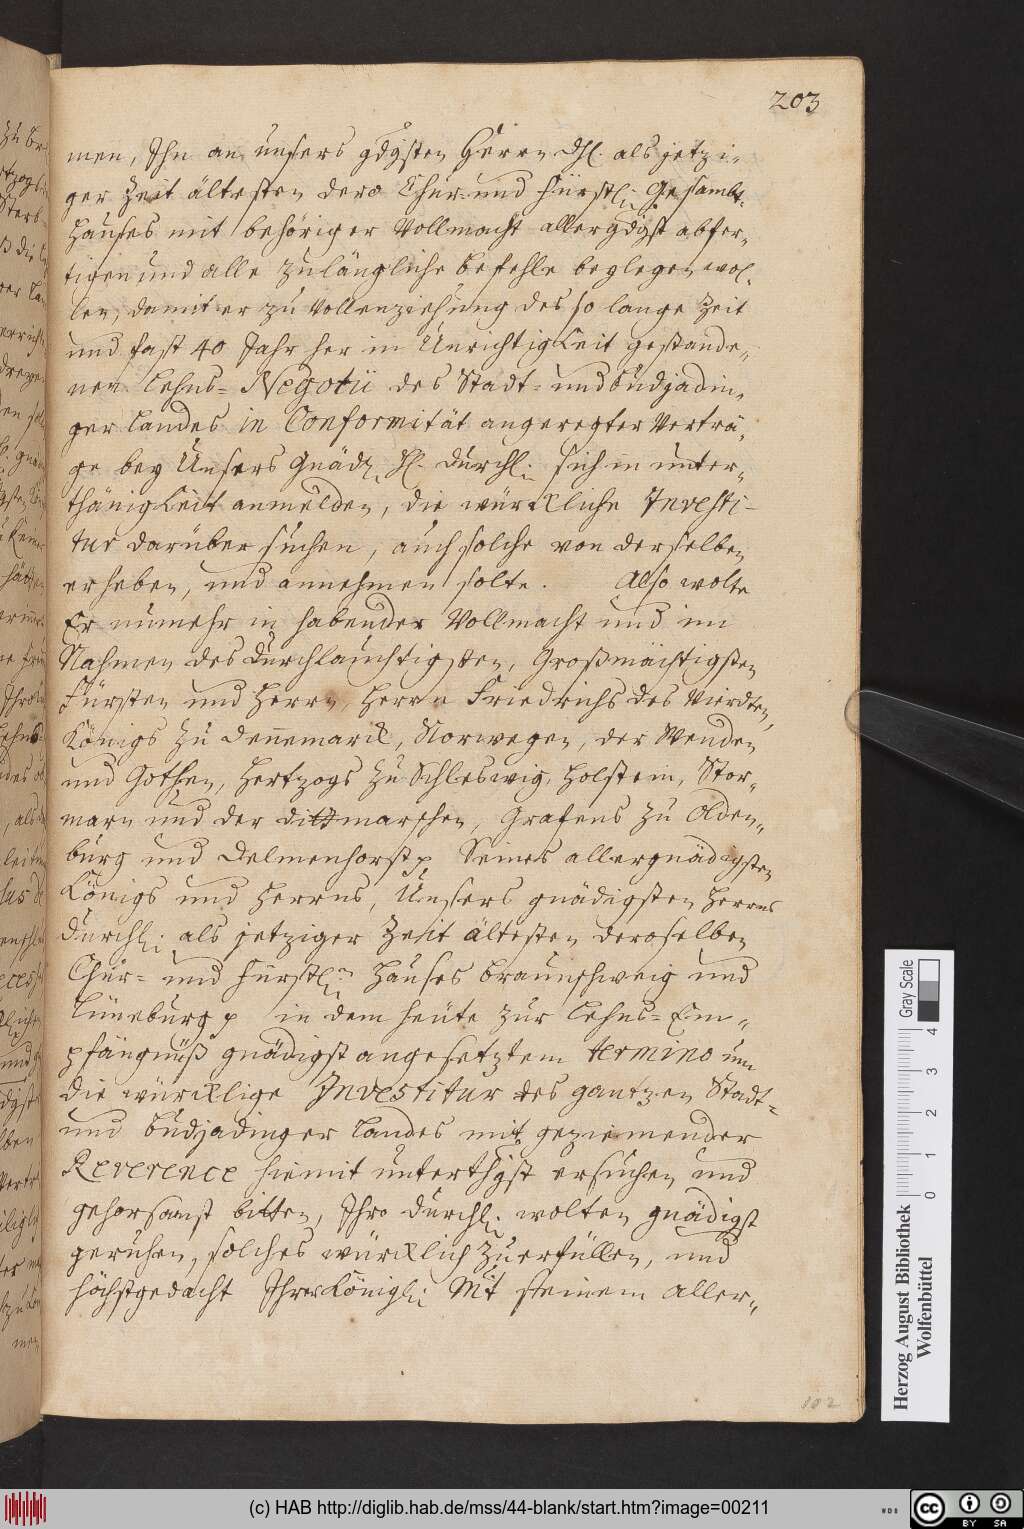 203
men, Ihn an unsers gdgsten Herrn Dhl. als jetzi-
ger Zeit ältesten dero Chur- und Fürstl: Gesambt-
Hauses mit behöriger Vollmacht allergdgst abfer-
tigen und alle zulängliche Befehle beylegen wol-
len, damit er zu Vollenziehung des so lange Zeit
und fast 40 Jahr her in Unrichtigkeit gestande-
nen Lehns- Negotii des Stadt- und Budjadin-
ger Landes in Conformität angeregter Verträ-
ge bey Unsers Gnädi. H. Durchl: sich in unter-
thänigkeit anmelden, die würckliche Investi-
tur darüber suchen, auch solche von derselben
erheben, und annehmen solte. Also wolte
Er nunmehr in habender Vollmacht und im
Nahmen des Durchlauchtigsten, Großmächtigsten
Fürsten und Herrn, Herrn Friedrichs des Vierdten,
Königs zu Dennemarck, Norwegen, der Wenden
und Gothen, Hertzogs zu Schleswig, Holstein, Stor-
marn und der Dittmarschen, Grafens zu Olden-
burg und Delmenhorst p Seines allergnädigsten
Königs und Herrns, Unsers gnädigsten Herrns
Durchl: als jetziger Zeit ältesten deroselben
Chur- und Fürstln Hauses Braunschweig und
Lüneburg p in dem heute zur Lehns- Em-
pfängnüß gnädigst angesetztem termino um
die würcklige Investitur des gantzen Stadt-
und Budjadinger Landes mit geziemender
Reverence hiemit unterthgst ersuchen und
gehorsamst bitten, Ihro Durchl: wolten gnädigst
geruhen, solches würcklich zu erfüllen, und
höchstgedacht Ihrer Königl: Mt seinem aller-
102
Herzog August Bibliothek
Wolfenbüttel
0 1 2 3 4
Gray Scale
(c) HAB http://diglib.hab.de/mss/44-blank/start.htm?image=00211
WDB
cc BY SA